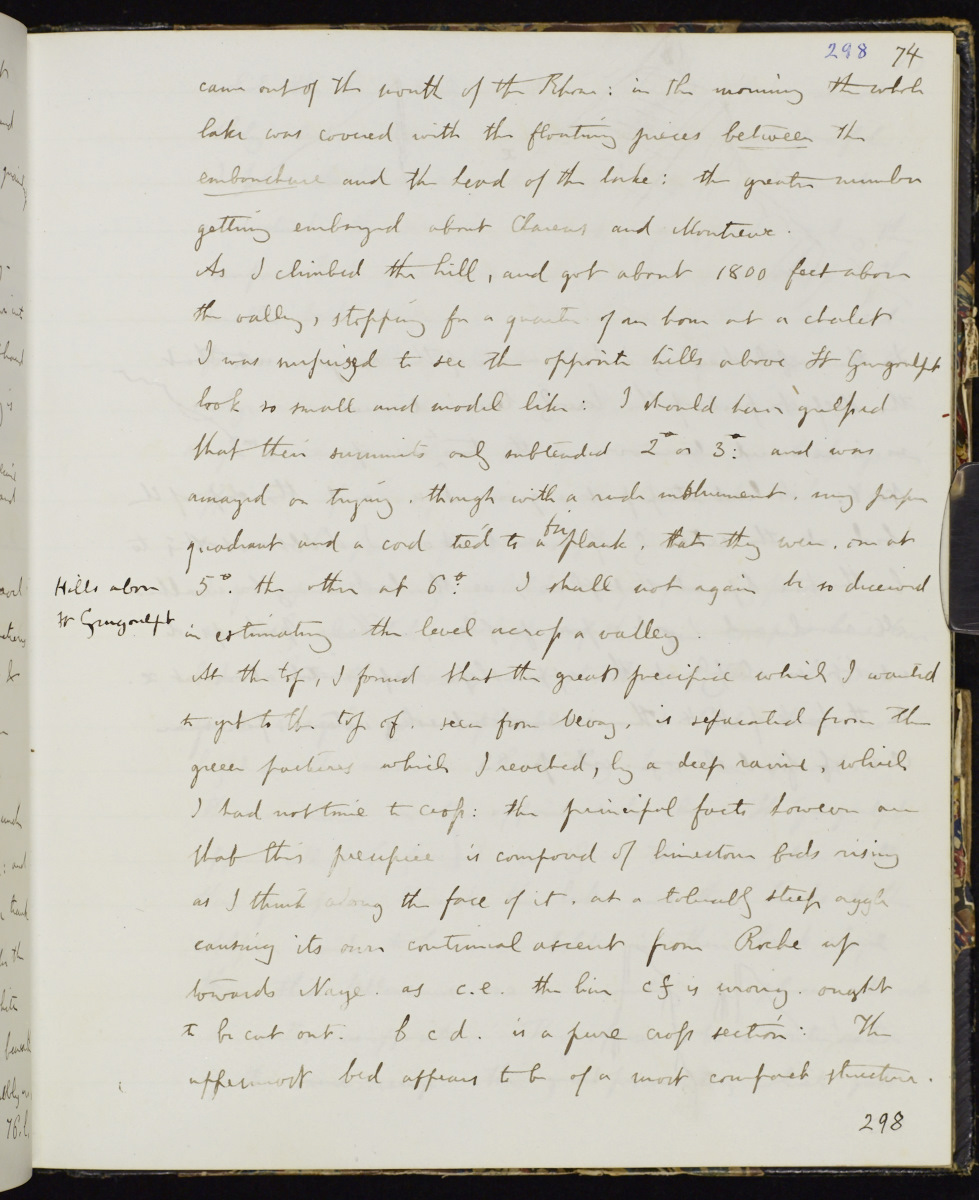 298 74
came out of the mouth of the Rhone: in the morning the whole
lake was covered with the floating pieces between the
embouchure and the head of the lake: the greater number
getting embayed about Clarens and Montreux.
As I climbed the hill, and got about 1800 feet above
the valley, stopping for a quarter of an hour at a chalet
I was surprized to see the opposite hills above St Gingoulph
look so small and model like: I should have guessed
that their summits only subtended 2° or 3°: and was
amazed on trying, though with a rude instrument, my paper
quadrant and a cord tied to a fir plank, that they were, one at
5°. the other at 6°. I shall not again be so deceived
Hills above
St Gingoulph
in estimating the level across a valley.
At the top, I found that the great precipice which I wanted
to get to the top of, seen from Vevay, is separated from the
green pastures which I reached, by a deep ravine, which
I had not time to cross: the principal facts however are
that this precipice is composed of limestone beds rising
as I think along the face of it, at a tolerably steep angle
causing its own continual ascent from Roche up
towards Naye. as c.e. the line c f is wrong. ought
to be cut out. b c d. is a pure cross section: The
uppermost bed appears to be of a most compact structure.
298